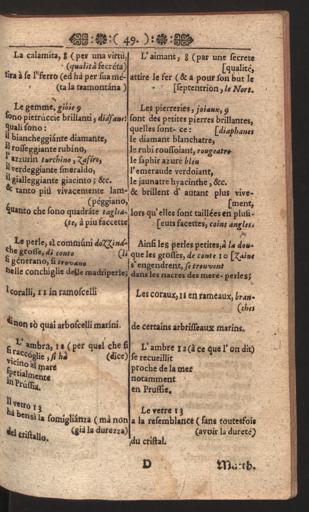 ( 49. )
La calamita, 8 ( per una virtù,
(qualità secreta)
tira à se l'ferro (ed hà per sua mé-
(ta la tramontâna )
Le gemme, gioie 9
sono pietruccie brillanti, diafane:
quali sono:
il biancheggiánte diamante,
il rosseggiante rubino,
l'azzurin turchino, zafiro,
il verdeggiante smeraldo,
il gialleggiante giacinto; &c.
& tanto più vivacemente lam-
(péggiano,
quanto che sono quadráte taglia-
te, à piu faccette
Le perle, si communi
che grosse, di conto
si génerano, si trovano
nelle conchiglie de madriperle;
I coralli, 11 in ramoscelli
di non sò quai arboscelli marini.
L' ambra, 12 ( per quel che si
si raccóglie, si hà (dice)
vicino al mare
spetialmente
in Prussia.
Il vetro 13
hà bensì la somigliánza ( mà non
(già la durezza)
del cristallo.
L'aimans, 8 (par une secrete
[qualité,
attire le fer ( & a pour son but le
[septentrion, le Nort.
Les pierreries, joiaux, 9
sont des petites pierres brillantes,
quelles sont- ce: [diaphanes
le diamant blanchatre,
le rubi roussoiant, rougeatre
le saphir azuré bleu
l'emeraude verdoiant,
le jaunatre hyacinthe, &c.
& brillent d' autant plus vive-
[ment,
lors qu'elles sont taillées en plusi-
[eurs facettes, coins angles.
Ainsi les perles petites, à la dou-
que les grosses, de conte 10 [zaine
s'engendrent, se treuvent
dans les nacres des mere-perles;
Les coraux, 11 en rameaux, bran-
(ches
de certains arbrisseaux marins.
L' ambre 12 (à ce que l' on dit)
se recueillit
proche de la mer
notamment
en Prussie.
Le verre 13
a la resemblance ( sans toutesfois
(avoir la dureté)
du cristal.
D